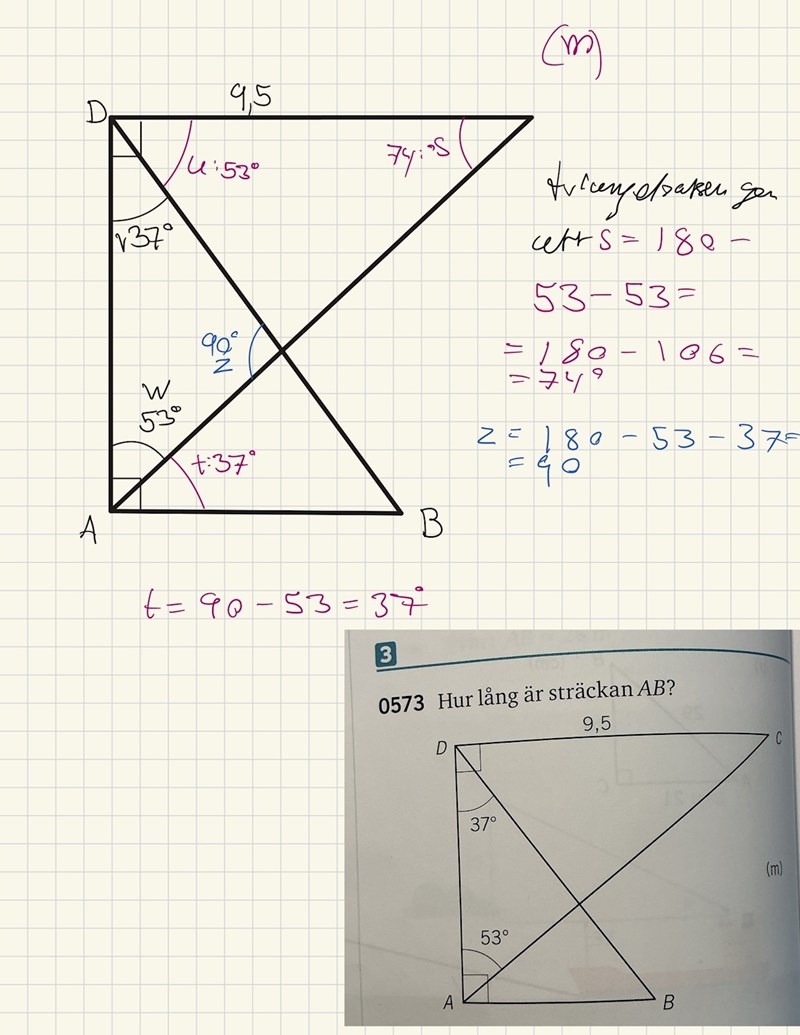 (m)
9,5
D
u:53°
74:°S
v37°
90°
z
w
53°
t:37°
A
B
ger
att s = 180 -
53 - 53 =
= 180 - 106 =
= 74°
z = 180 - 53 - 37 =
= 90
t = 90 - 53 = 37°
3
0573 Hur lång är sträckan AB?
9,5
D
C
37°
(m)
53°
A
B